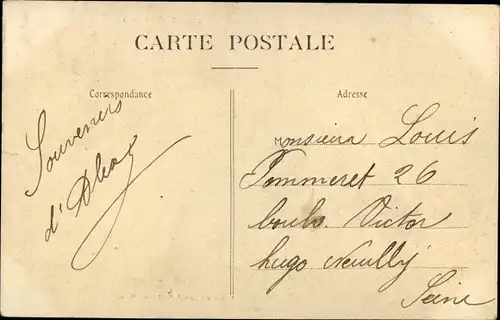 CARTE POSTALE
Correspondance
Adresse
Souvenirs
Monsieur Louis
Pommeret 26
boulv. Victor
hugo Neuilly
Seine